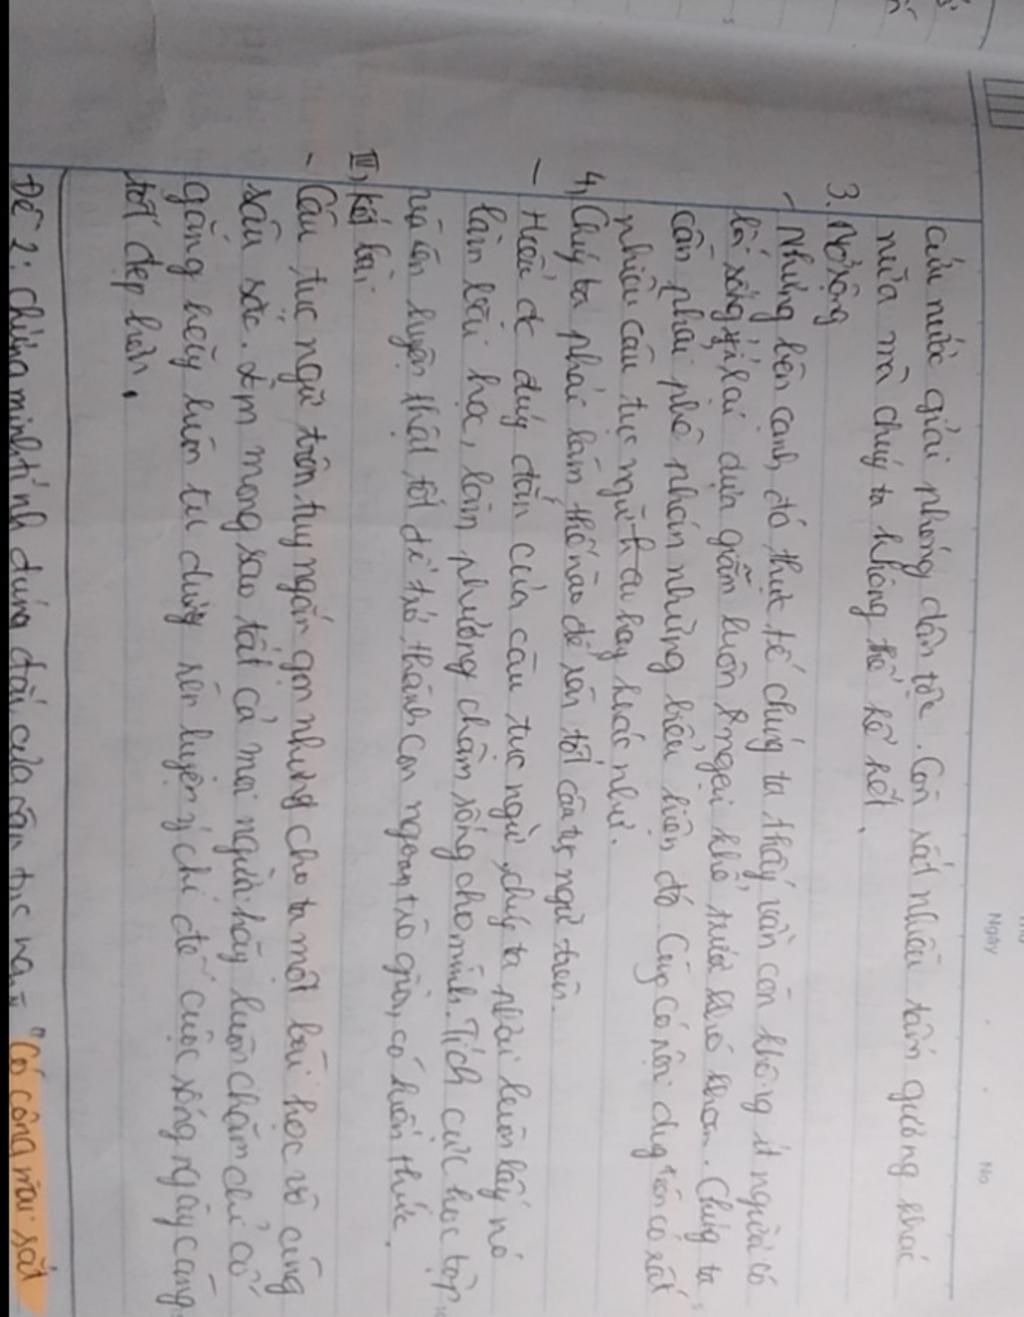 cứu nước giải phóng dân tộc. Còn rất nhiều tấm gương khác
nữa mà chúg ta không thể kể hết.
3. Mở rộng
- Nhưng bên cạnh đó, thực tế chúng ta thấy vẫn còn không ít người có
lối sống ỷ lại dựa giẫm luôn ngại khổ trước khó khăn. Chúng ta
cần phải phê phán những biểu hiện đó. Cũg có nội dug trên có rất
nhiều câu tục ngữ hay khác như.
4, Chúg ta phải làm thế nào để làm tốt câu tục ngữ trên.
- Hiểu đc đúg đắn của câu tục ngữ, chúg ta phải luôn lấy nó
làm bài học, làm phương châm sống cho mình. Tích cực học tập
và rèn luyện thật tốt để trở thành con ngoan, trò giỏi, có kiến thức.
III, Kết bài:
- Câu tục ngữ trên tuy ngắn gọn nhưng cho ta một bài học vô cùng
sâu sắc. Em mong sao tất cả mọi người hãy luôn chăm chỉ cố
gắng hãy luôn tu dưỡng rèn luyện ý chí để cuộc sống ngày càng
tốt đẹp hơn.
Đề 2: Chứng minh tính đúng đắn của câu tục ngữ "Có công mài sắt
Ngày
No